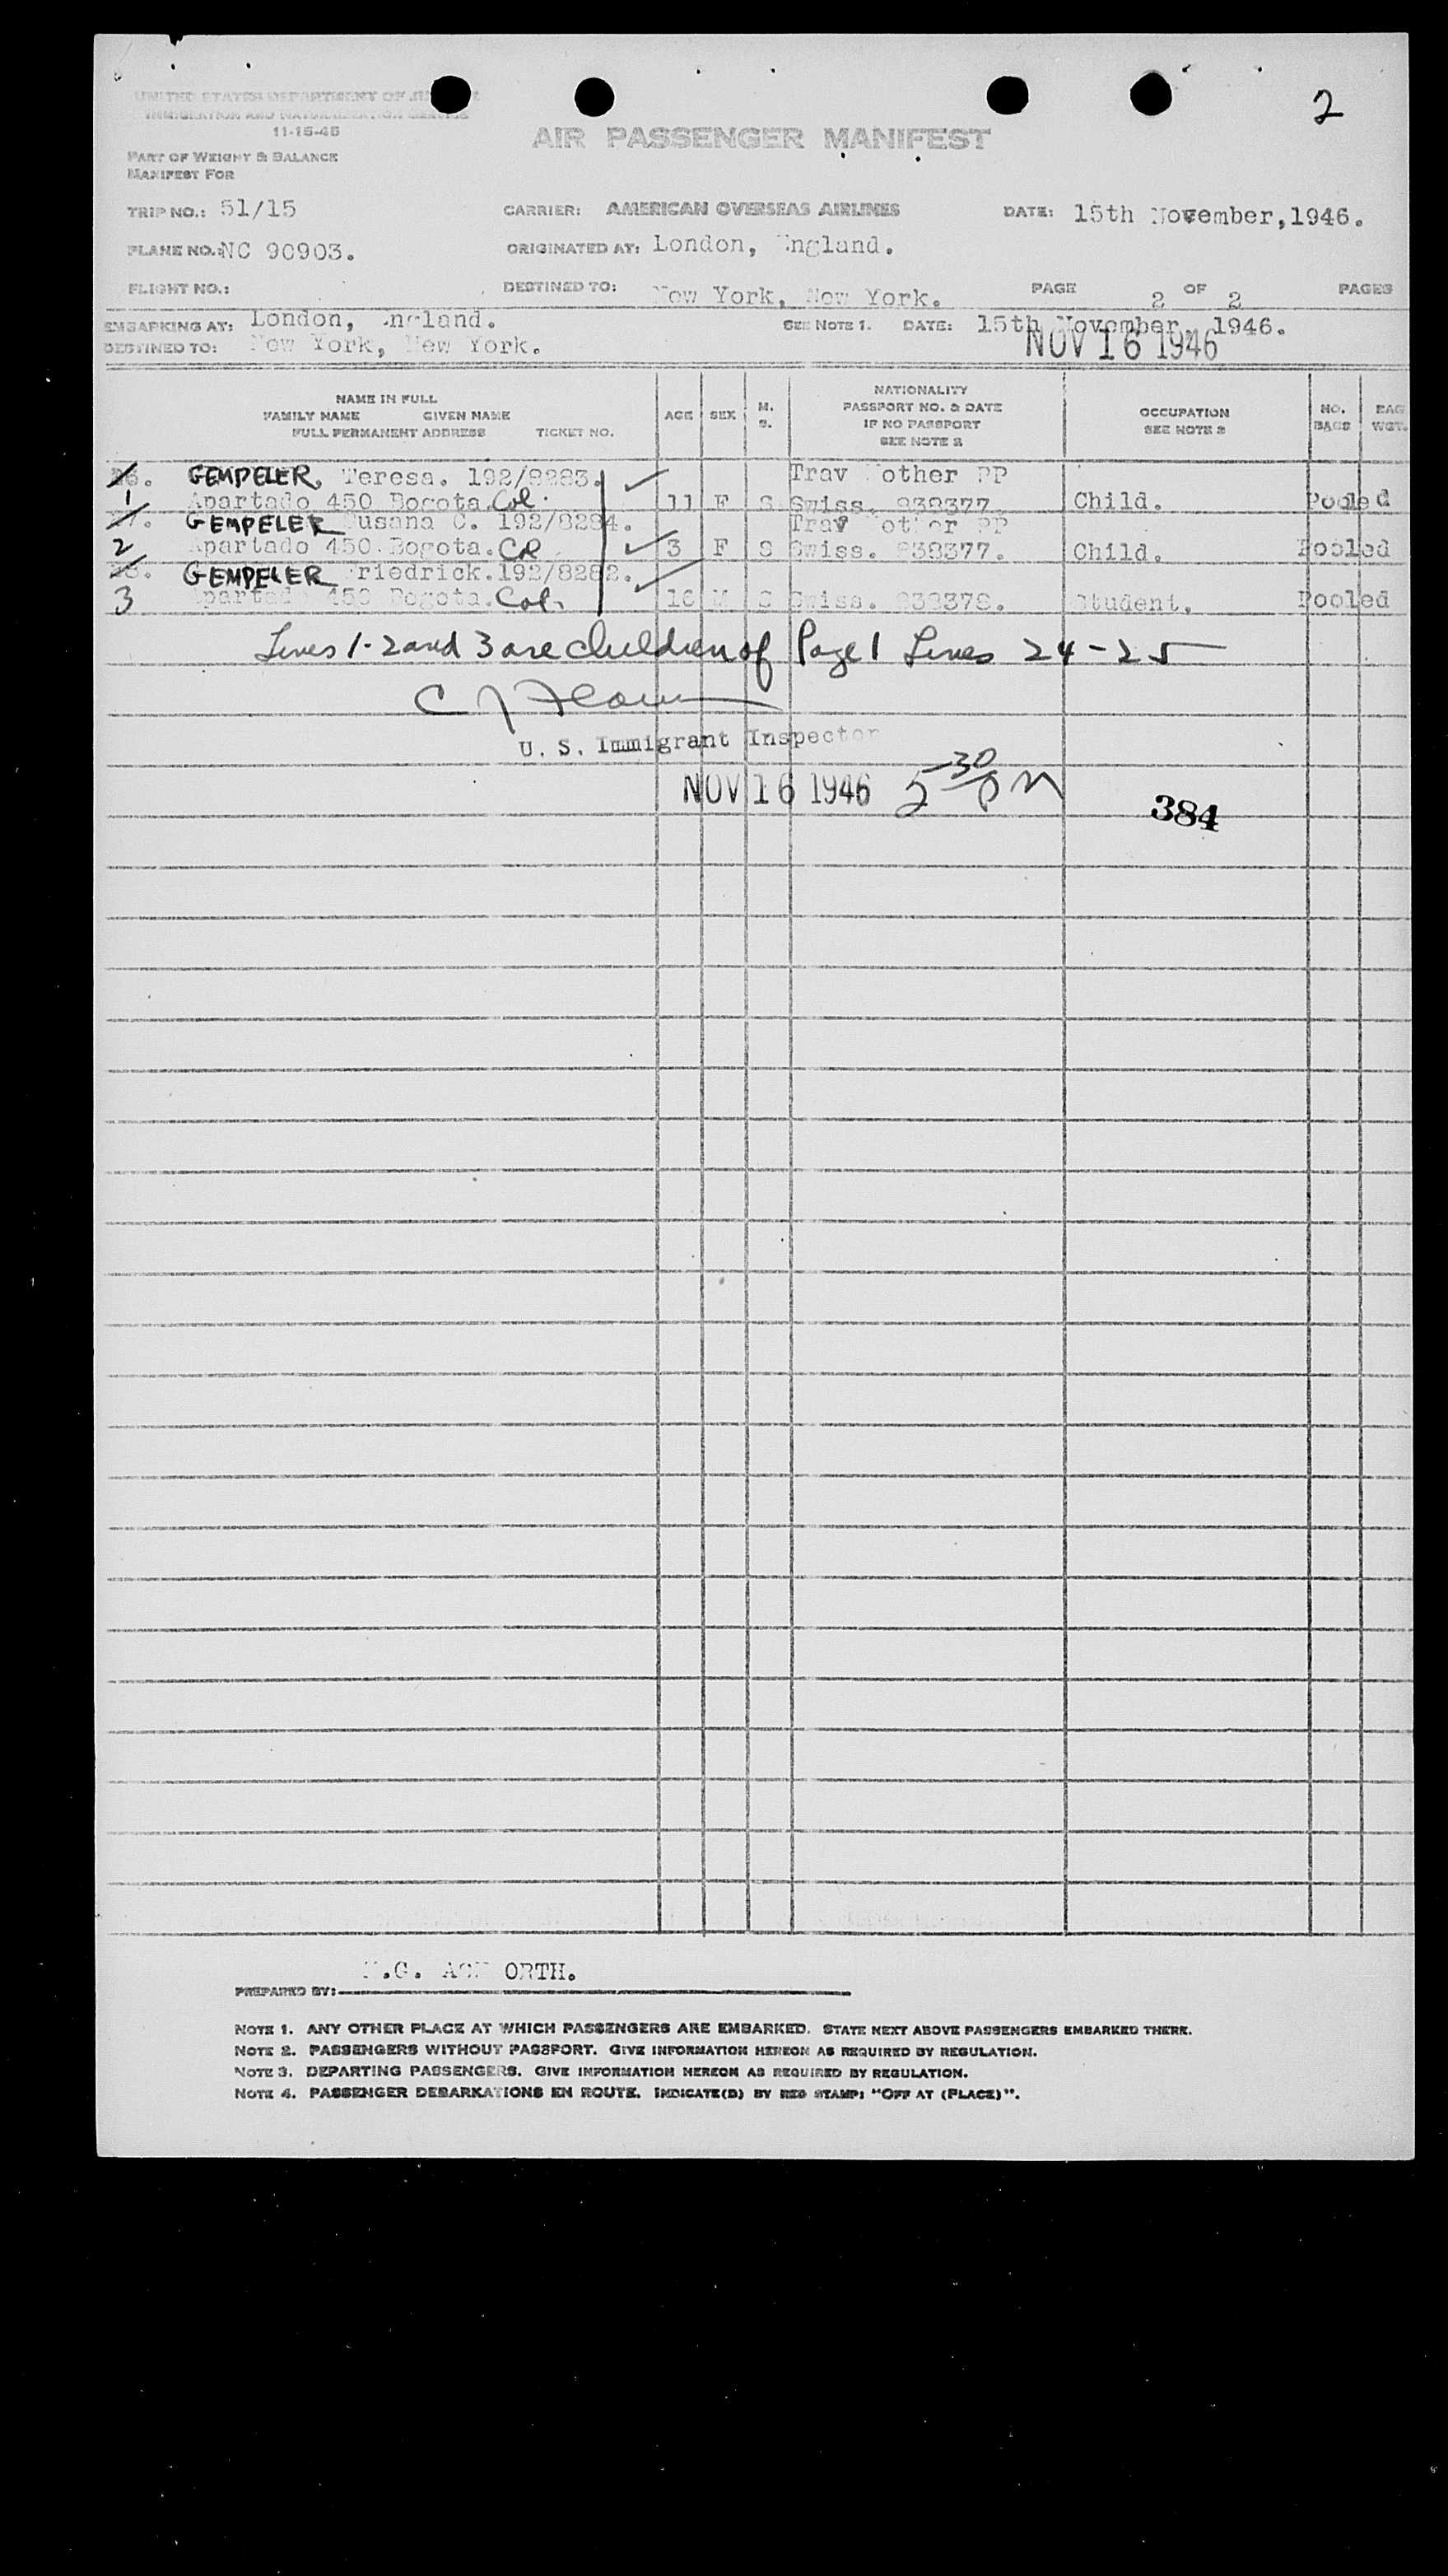 2
UNITED STATES DEPARTMENT OF
IMMIGRATION AND NATURALIZATION SERVICE
11-15-45
AIR PASSENGER MANIFEST
PART OF WEIGHT & BALANCE
MANIFEST FOR
TRIP NO.: 51/15 CARRIER: AMERICAN OVERSEAS AIRLINES DATE: 15th November, 1946.
PLANE NO.: NC 90903. ORIGINATED AT: London, England.
FLIGHT NO.: DESTINED TO: New York, New York. PAGE 2 OF 2 PAGES
EMBARKING AT: London, England. SEE NOTE 1. DATE: 15th November, 1946.
DESTINED TO: New York, New York. NOV 16 1946
NAME IN FULL
FAMILY NAME GIVEN NAME
FULL PERMANENT ADDRESS TICKET NO.
AGE SEX M. S.
NATIONALITY
PASSPORT NO. & DATE
IF NO PASSPORT
SEE NOTE 2
OCCUPATION
SEE NOTE 3
NO. BAGS
BAG WGT.
26. GEMPELER, Teresa. 192/8283. Trav Mother PP
1 Apartado 450 Bogota. Col. 11 F S Swiss. 938377. Child. Pooled
27. GEMPELER Susana C. 192/8284. Trav Mother PP
2 Apartado 450. Bogota. Col 3 F S Swiss. 938377. Child. Pooled
28. GEMPELER Friedrick. 192/8282.
3 Apartado 450 Bogota. Col. 16 M S Swiss. 938378. Student. Pooled
Lines 1-2 and 3 are children of Page 1 Lines 24-25
U. S. Immigrant Inspector
NOV 16 1946 5 30 PM
384
PREPARED BY:
NOTE 1. ANY OTHER PLACE AT WHICH PASSENGERS ARE EMBARKED. STATE NEXT ABOVE PASSENGERS EMBARKED THERE.
NOTE 2. PASSENGERS WITHOUT PASSPORT. GIVE INFORMATION HEREON AS REQUIRED BY REGULATION.
NOTE 3. DEPARTING PASSENGERS. GIVE INFORMATION HEREON AS REQUIRED BY REGULATION.
NOTE 4. PASSENGER DEBARKATIONS EN ROUTE. INDICATE(D) BY RED STAMP: "OFF AT (PLACE)".